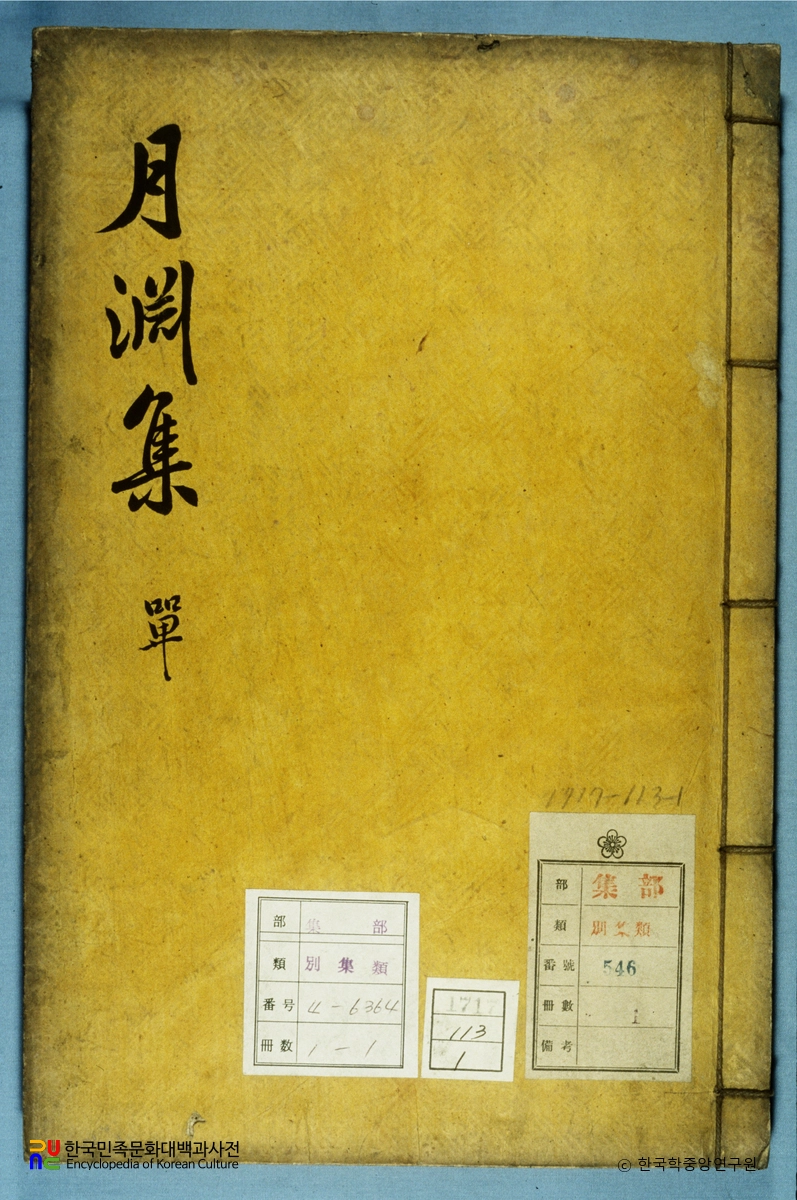 月淵集
單
1717-113-1
部 集部
類 別集類
番號 546
冊數 1
備考
部 集部
類 別集類
番号 4-6364
冊数 1-1
1717
113
1
한국민족문화대백과사전
Encyclopedia of Korean Culture
© 한국학중앙연구원